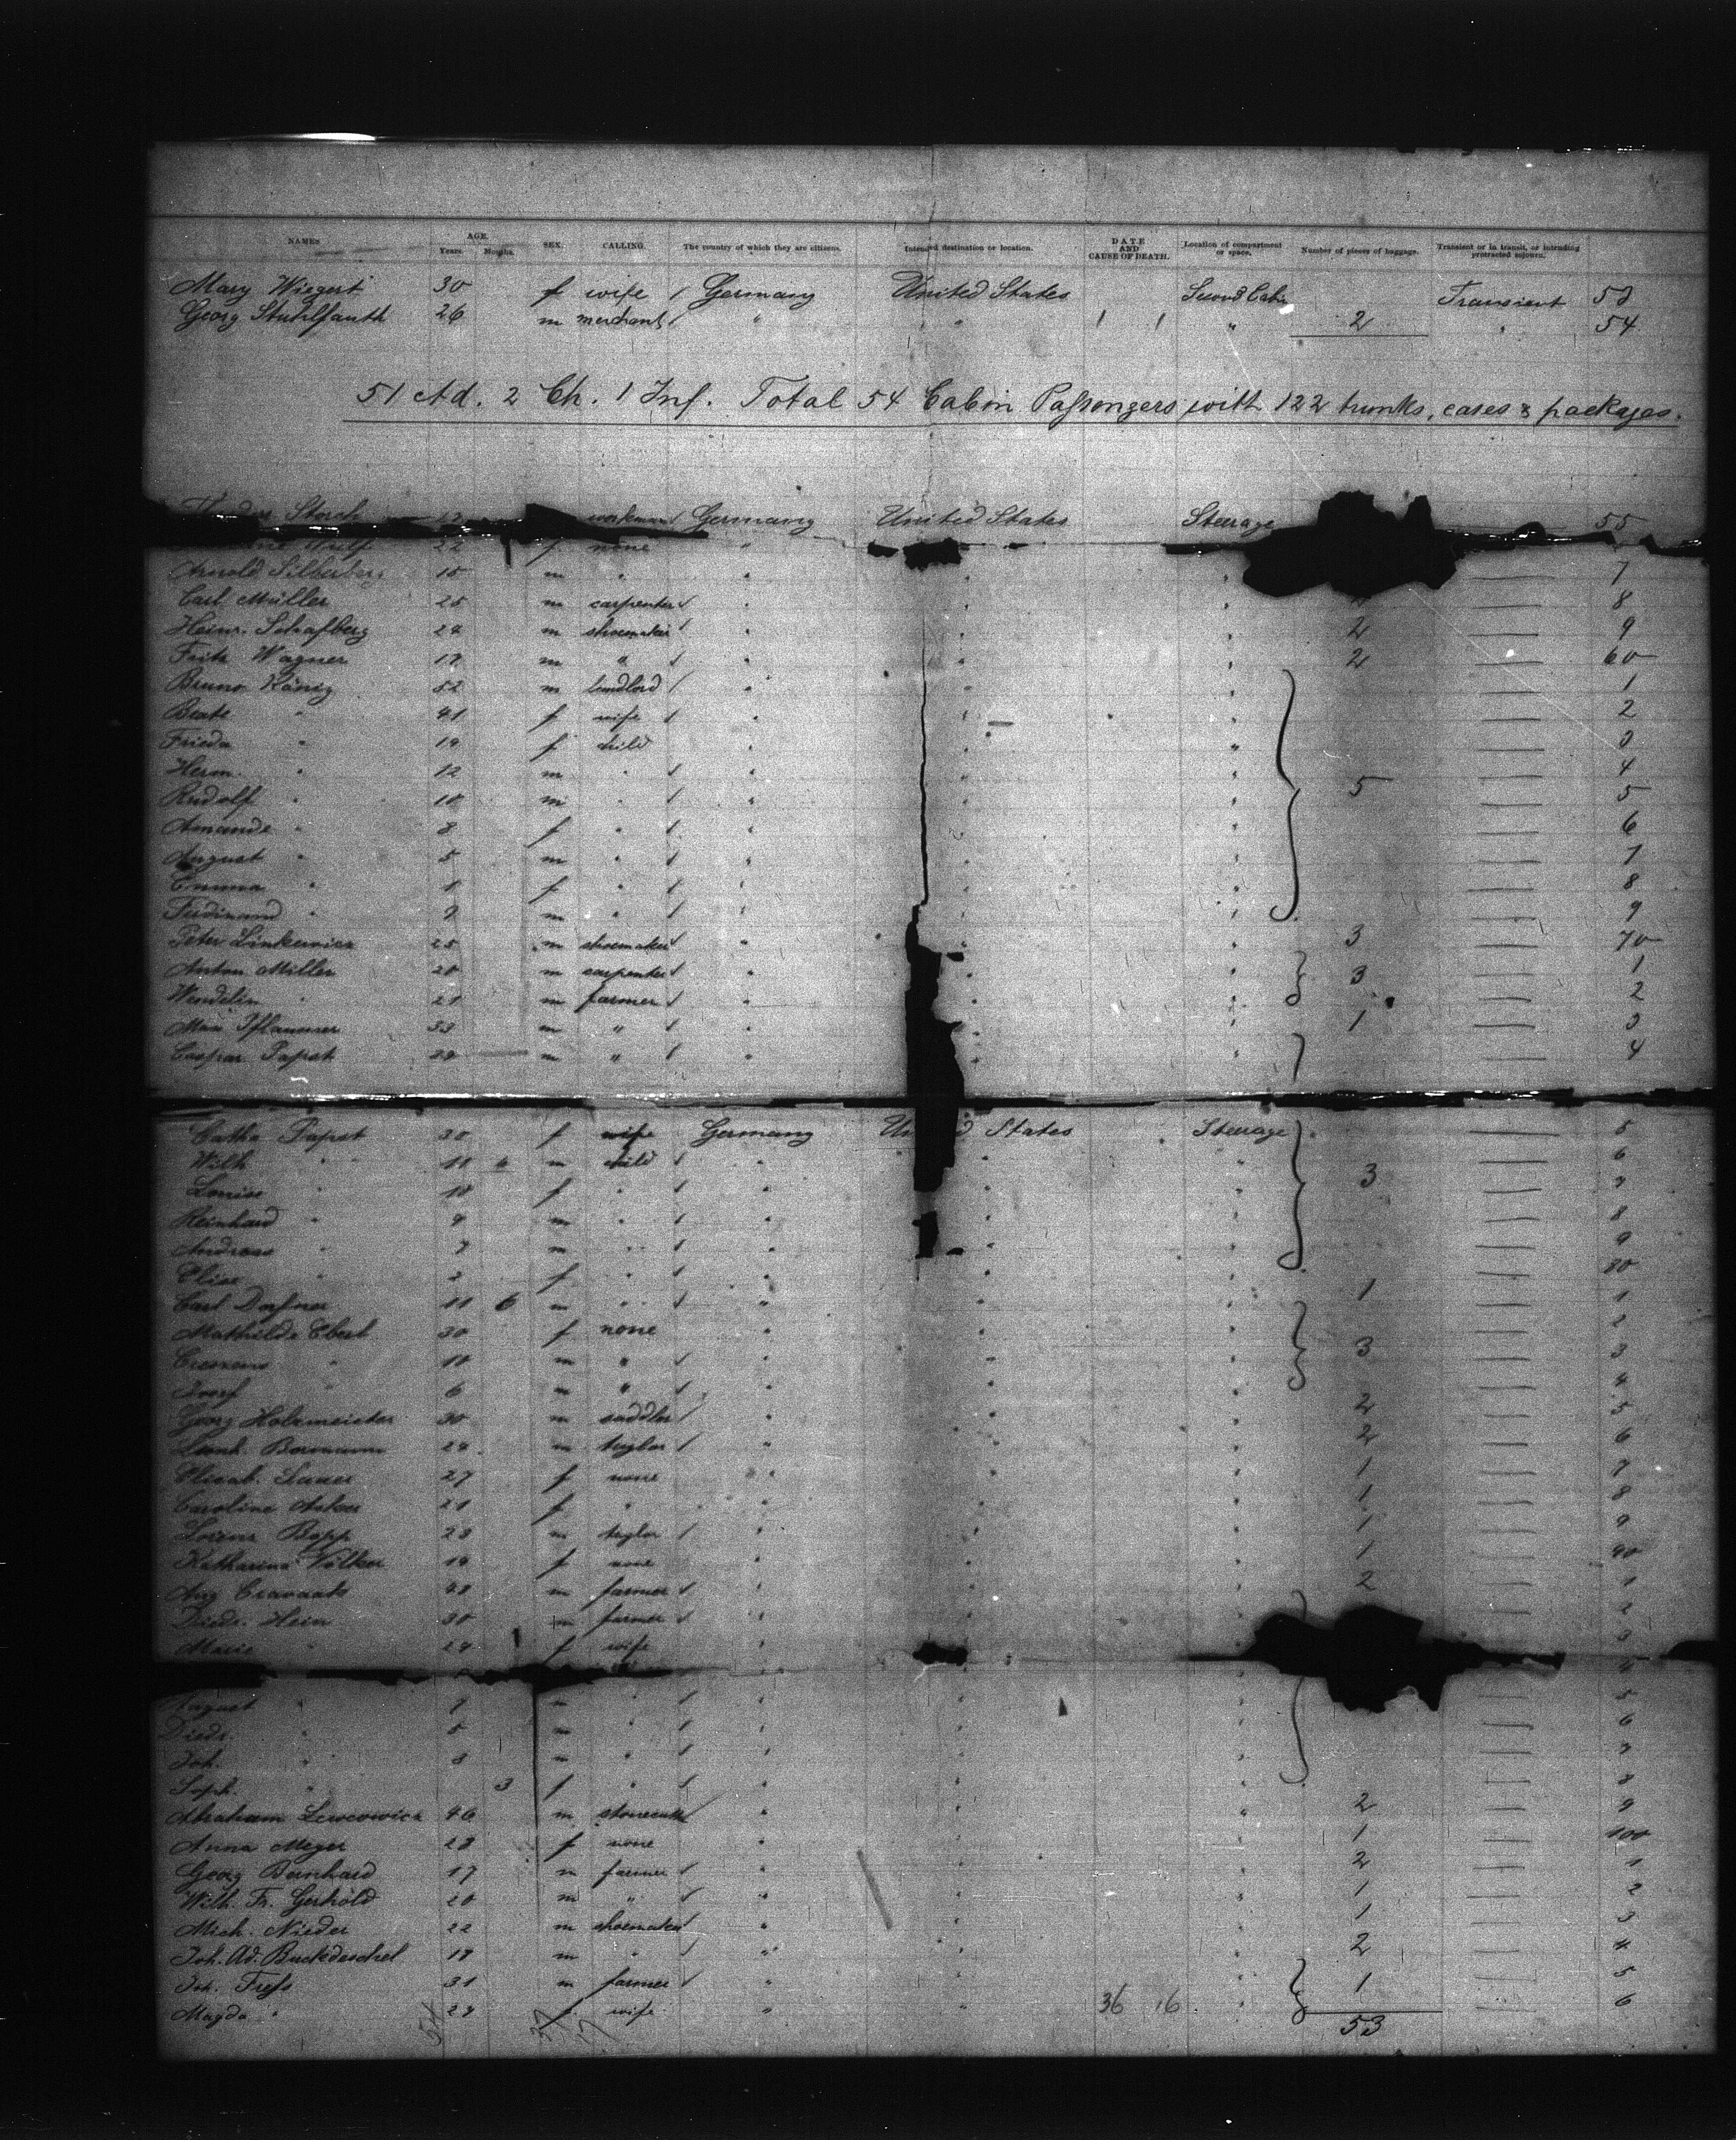 NAMES AGE. Years. Months. SEX. CALLING. The country of which they are citizens. Intended destination or location. DATE AND CAUSE OF DEATH. Location of compartment or space. Number of pieces of baggage. Transient or in transit, or intending protracted sojourn.
Mary Wiegert 30 f wife / Germany United States Second Cabin Transient 53
Georg Stuhlfauth 26 m merchant / " " 1 1 " 2 " 54
51 Ad. 2 Ch. 1 Inf. Total 54 Cabin Passengers with 122 trunks, cases & packages.
Storch workman / Germany United States Steerage 55
22 f none "
Arnold Silberberg 15 m " " " " — 7
Carl Müller 25 m carpenter / " " " — 8
Heinr. Schafberg 24 m shoemaker / " " " 2 — 9
Fritz Wagner 17 m " / " " " 2 — 60
Bruno König 52 m landlord / " " " — 1
Beate " 41 f wife / " " " — 2
Frieda " 19 f child " " " — 3
Herm. " 12 m " / " " " — 4
Rudolf " 10 m " / " " " 5 — 5
Amande " 8 f " / " " " — 6
August " 5 m " / " " " — 7
Emma " 1 f " / " " " — 8
Ferdinand " 9 m " / " " " — 9
Peter Linkewicz 25 m shoemaker / " " " 3 — 70
Anton Miller 20 m carpenter / " " " 3 — 1
Wendelin " 21 m farmer / " " " — 2
Max Pflaumer 33 m " / " " " 1 — 3
Caspar Papst 29 m " / " " " — 4
Catha Papst 30 f wife Germany United States Steerage — 5
Wilh " 11 6 m child / " " " 3 — 6
Louise " 10 f " / " " " — 7
Reinhard " 9 m " / " " " — 8
Andreas " 7 m " / " " " — 9
Elise " 2 f " / " " " — 80
Carl Dorfner 11 6 m " / " " " 1 — 1
Mathilde Ebert 30 f none " " " — 2
10 m " / " " " 3 — 3
Josef " 6 m " / " " " — 4
Georg Holzmeister 30 m saddler / " " " 2 — 5
Leonh. Bormann 24 m taylor / " " " 2 — 6
Elisab. Sauer 27 f none " " " 1 — 7
Caroline 21 f " " " " 1 — 8
Lorenz Bopp 23 m taylor / " " " 1 — 9
Katharina Völker 19 f none " " " 1 — 90
Aug 48 m farmer / " " " 2 — 1
Diedr. Hein 30 m farmer / " " " — 2
Marie " 29 f wife " " " — 3
4
August " 7 m " / " " " — 5
Diedr. " 5 m " / " " " — 6
Joh. " 3 m " / " " " — 7
Soph. " 3 f " / " " " — 8
Abraham Lewcowicz 46 m stonecutter / " " " 2 — 9
Anna Meyer 23 f none " " " 1 — 100
Georg Bernhard 17 m farmer / " " " 2 — 1
Wilh. Fr. Gerhold 20 m " / " " " 1 — 2
Mich. Nieder 22 m shoemaker / " " " 1 — 3
Joh. Ad. Buckdeschel 17 m " / " " " 2 — 4
Joh. Fress 31 m farmer / " " " 1 — 5
Magda " 29 f wife " " 36 16 " — 6
53